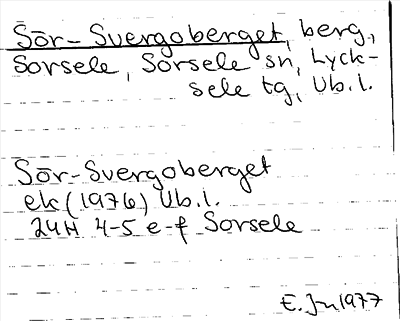 Sör-Svergoberget, berg,
Sorsele, Sorsele sn, Lyck-
sele tg, Vb.l.
Sör-Svergoberget
ek (1976) Vb.l.
24H 4-5 e-f Sorsele
1977